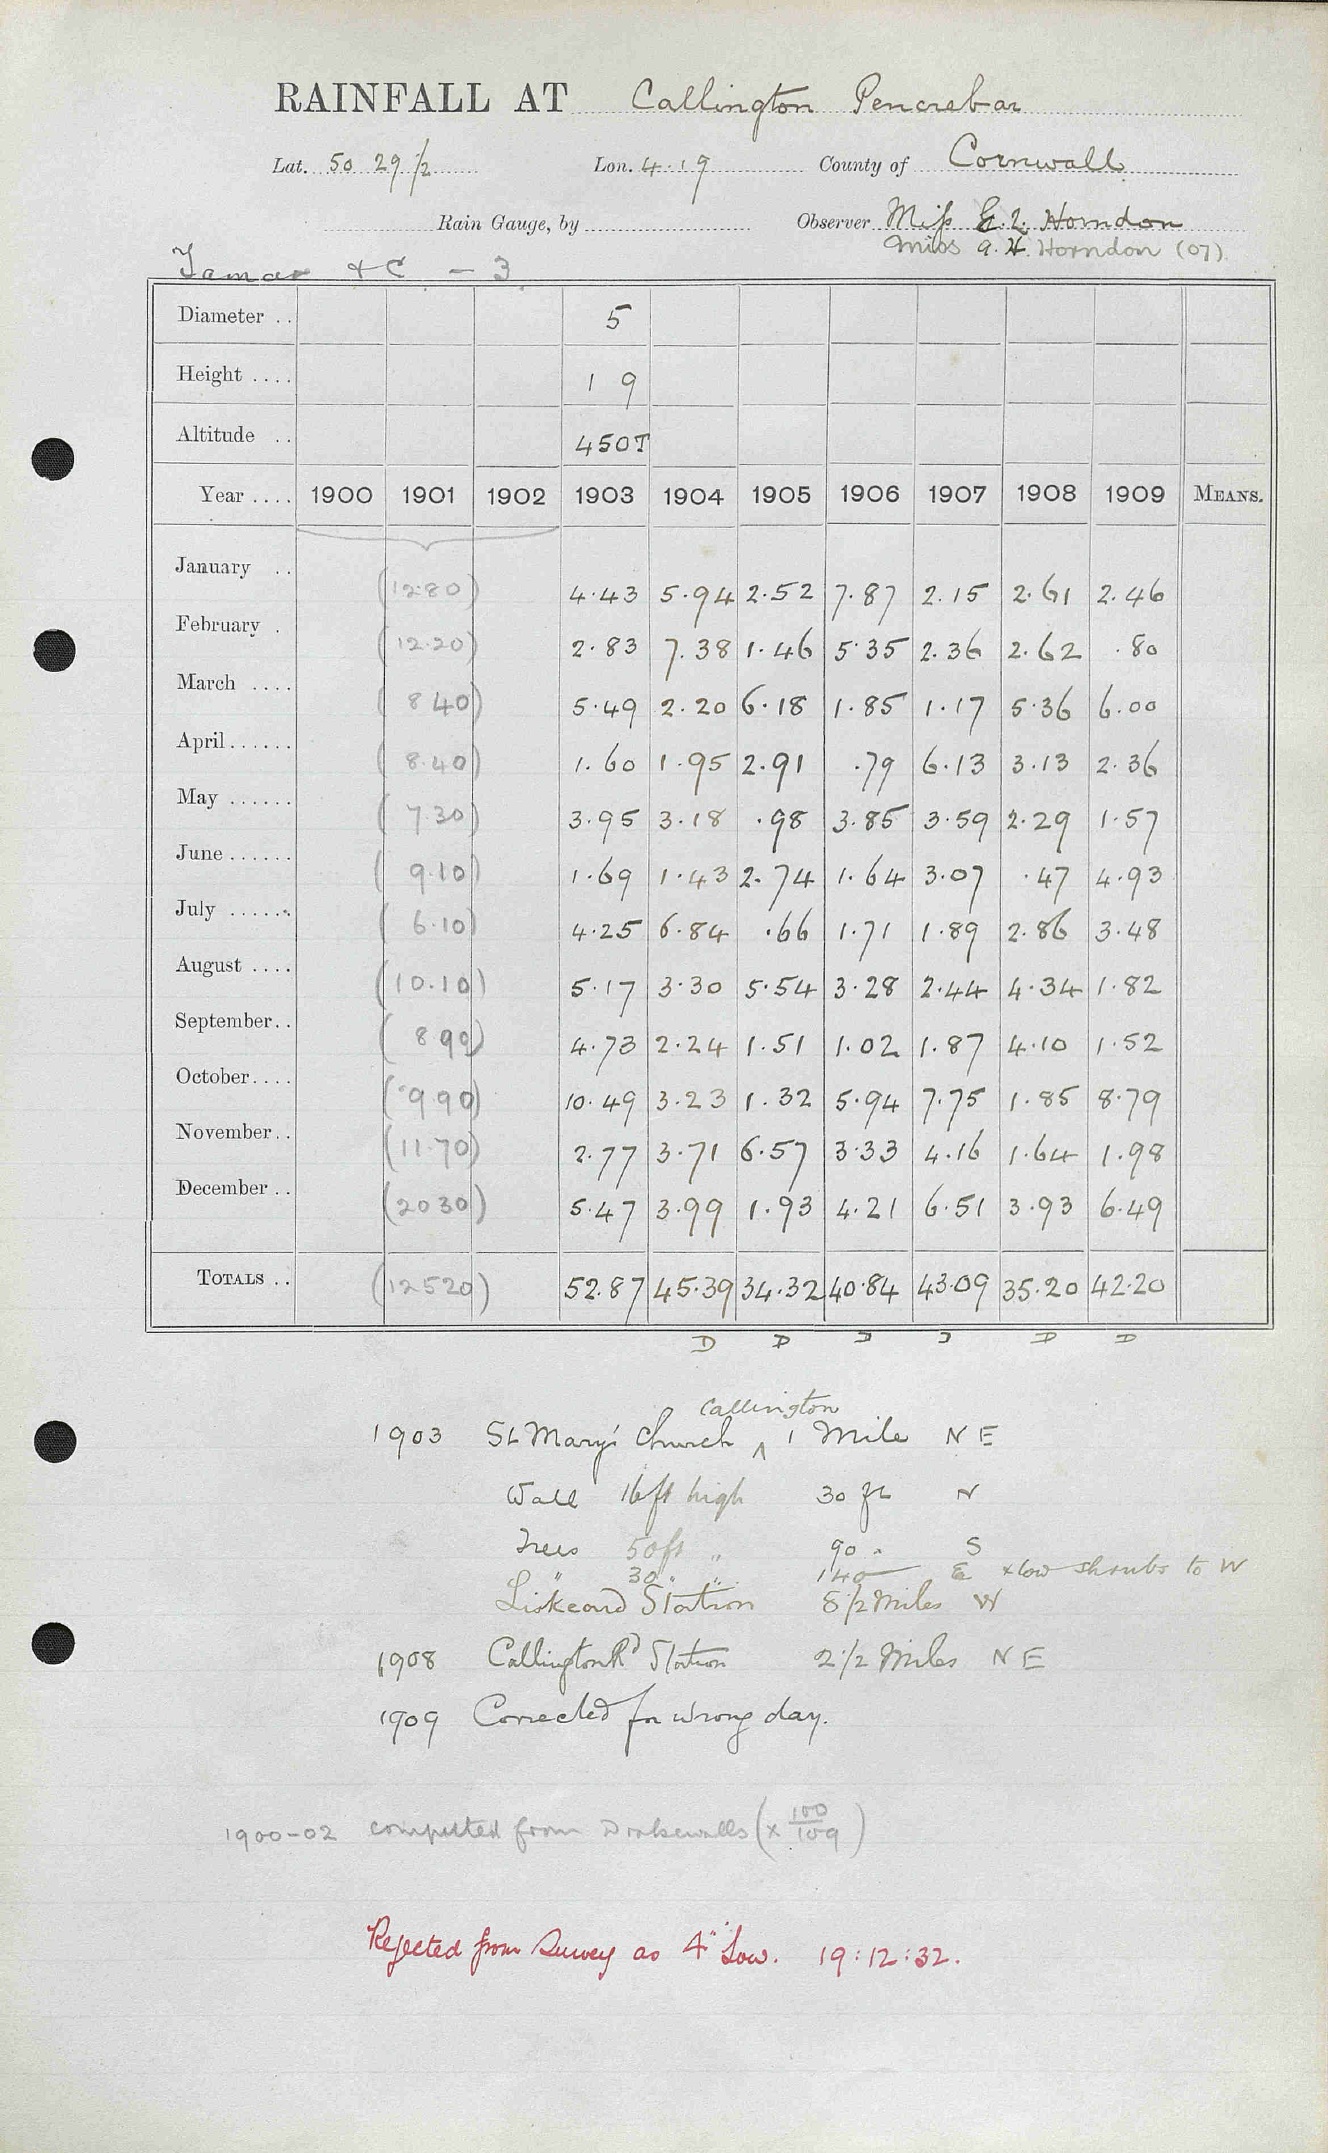 RAINFALL AT Callington Pencrebar
Lat. 50 29 1/2 Lon. 4.19 County of Cornwall
Rain Gauge, by Observer Miss E. L. Horndon
Miss A. H. Horndon (07)
Tamar & C - 3
Diameter .. 5
Height .... 1 9
Altitude .. 450T
Year .... 1900 1901 1902 1903 1904 1905 1906 1907 1908 1909 MEANS.
January .. (12.80) 4.43 5.94 2.52 7.87 2.15 2.61 2.46
February . (12.20) 2.83 7.38 1.46 5.35 2.36 2.62 .80
March .... (8 40) 5.49 2.20 6.18 1.85 1.17 5.36 6.00
April...... (8.40) 1.60 1.95 2.91 .79 6.13 3.13 2.36
May ...... (7.30) 3.95 3.18 .98 3.85 3.59 2.29 1.57
June...... (9.10) 1.69 1.43 2.74 1.64 3.07 .47 4.93
July ...... (6.10) 4.25 6.84 .66 1.71 1.89 2.86 3.48
August .... (10.10) 5.17 3.30 5.54 3.28 2.44 4.34 1.82
September.. (8 90) 4.73 2.24 1.51 1.02 1.87 4.10 1.52
October.... (9.90) 10.49 3.23 1.32 5.94 7.75 1.85 8.79
November.. (11.70) 2.77 3.71 6.57 3.33 4.16 1.64 1.98
December .. (20 30) 5.47 3.99 1.93 4.21 6.51 3.93 6.49
TOTALS .. (125 20) 52.87 45.39 34.32 40.84 43.09 35.20 42.20
D D D D D D
Callington
1903 St Mary's Church ^ 1 Mile N E
Wall 16 ft high 30 ft N
Trees 50 ft " 90 " S
" 30 " " 140 E & low shrubs to W
Liskeard Station 8 1/2 Miles W
1908 Callington Rd Station 2 1/2 Miles N E
1909 Corrected for wrong day.
1900-02 computed from Drakewalls (x 100/109)
Rejected from Survey as 4" Low. 19:12:32.